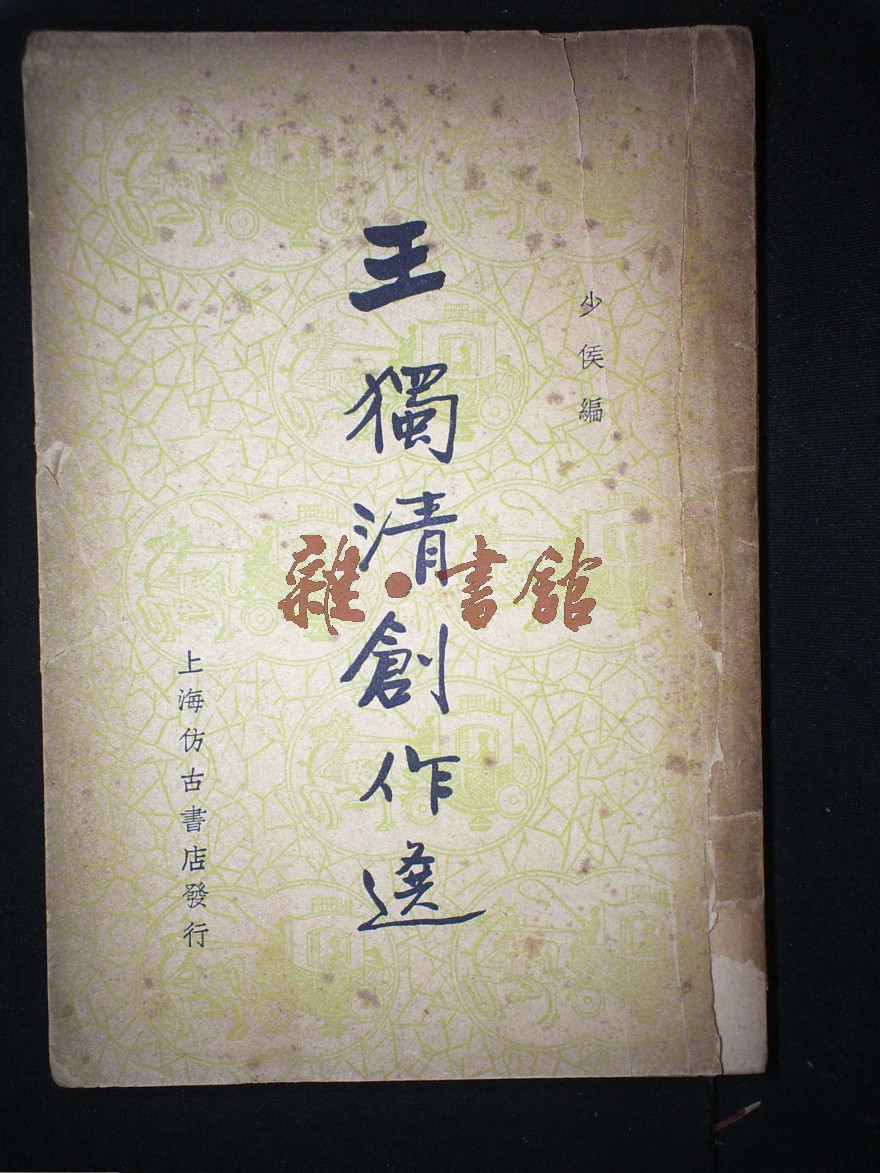 少侯編
王獨清創作選
上海仿古書店發行
雜·書館